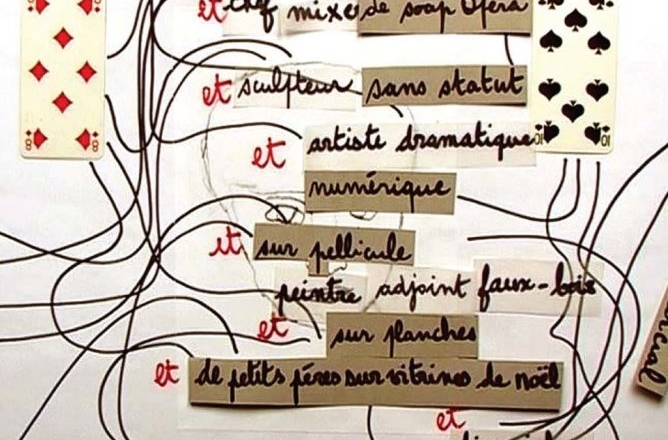 et chef mixe de soap Opéra
et sculpteur sans statut
et artiste dramatique
numérique
et sur pellicule
peintre adjoint faux-bois
et sur planches
et de petits pères sur vitrines de noël
et
8
10